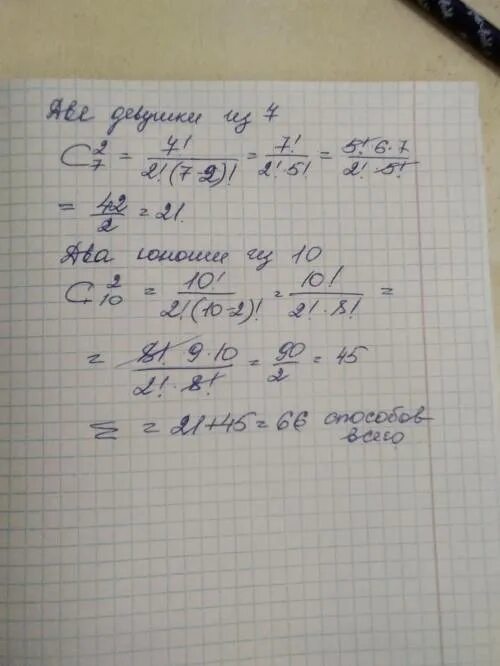 Две девушки из 7
C₇² = 7!/2!(7-2)! = 7!/2!·5! = 5!·6·7/2!·5!
= 42/2 = 21.
Два юноши из 10
C₁₀² = 10!/2!(10-2)! = 10!/2!·8! =
= 8!·9·10/2!·8! = 90/2 = 45
Σ = 21+45 = 66 способов
всего